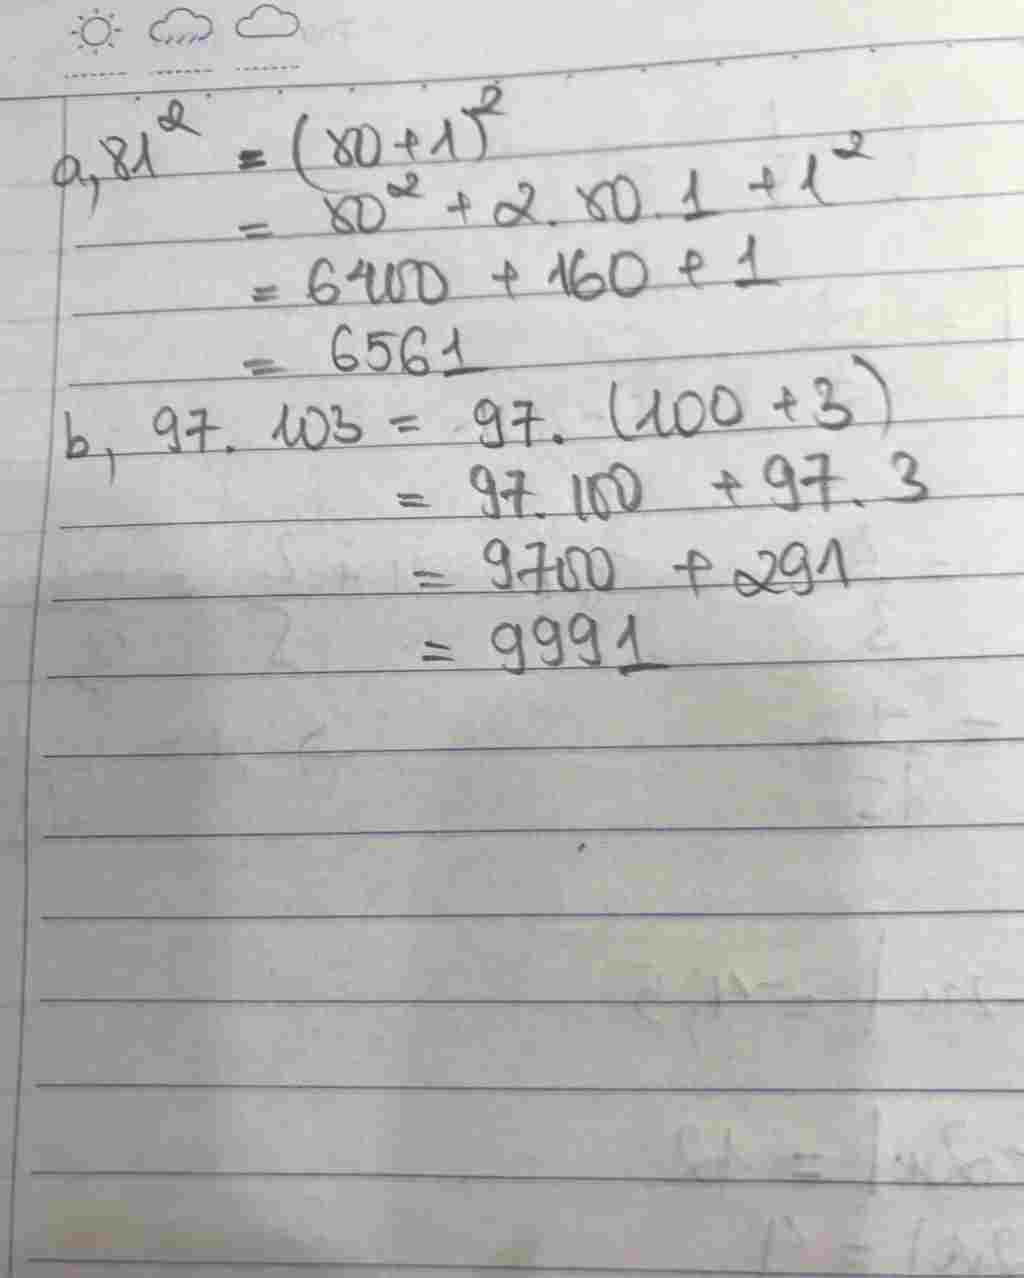 a, 81² = (80+1)²
= 80² + 2. 80. 1 + 1²
= 6400 + 160 + 1
= 6561
b, 97. 103 = 97. (100 + 3)
= 97. 100 + 97. 3
= 9700 + 291
= 9991